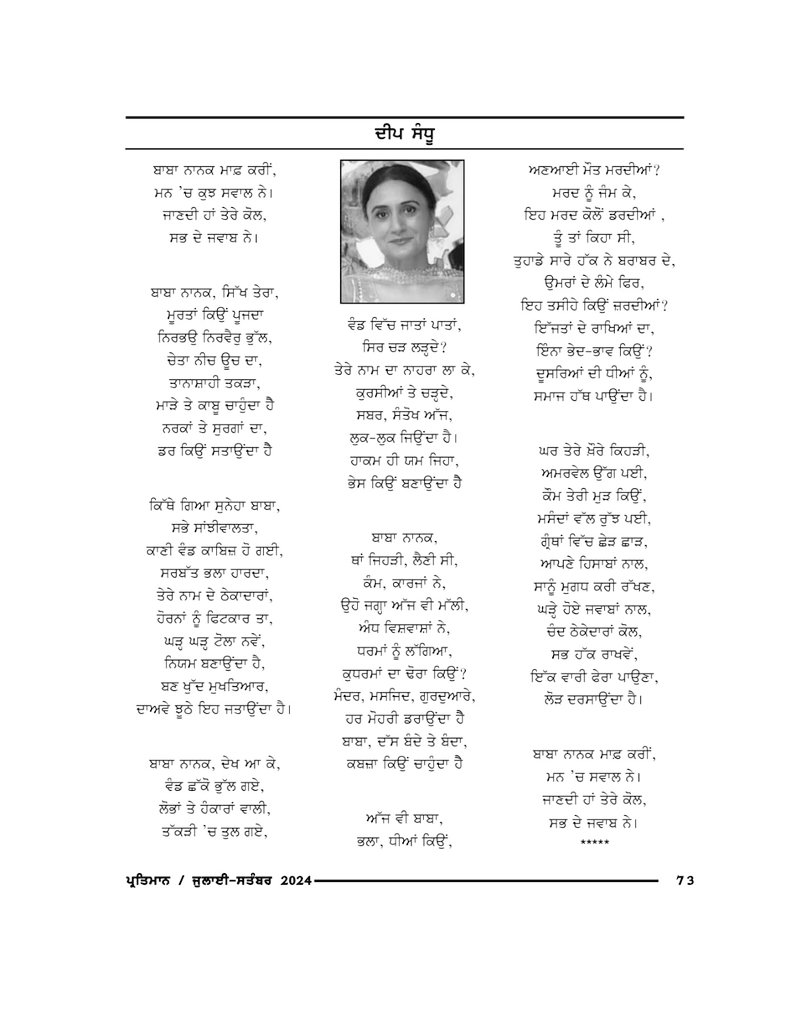 ਦੀਪ ਸੰਧੂ
ਬਾਬਾ ਨਾਨਕ ਮਾਫ਼ ਕਰੀਂ,
ਮਨ 'ਚ ਕੁਝ ਸਵਾਲ ਨੇ।
ਜਾਣਦੀ ਹਾਂ ਤੇਰੇ ਕੋਲ,
ਸਭ ਦੇ ਜਵਾਬ ਨੇ।
ਬਾਬਾ ਨਾਨਕ, ਸਿੱਖ ਤੇਰਾ,
ਮੂਰਤਾਂ ਕਿਉਂ ਪੂਜਦਾ
ਨਿਰਭਉ ਨਿਰਵੈਰੁ ਭੁੱਲ,
ਚੇਤਾ ਨੀਚ ਊਚ ਦਾ,
ਤਾਨਾਸ਼ਾਹੀ ਤਕੜਾ,
ਮਾੜੇ ਤੇ ਕਾਬੂ ਚਾਹੁੰਦਾ ਹੈ
ਨਰਕਾਂ ਤੇ ਸੁਰਗਾਂ ਦਾ,
ਡਰ ਕਿਉਂ ਸਤਾਉਂਦਾ ਹੈ
ਕਿੱਥੇ ਗਿਆ ਸੁਨੇਹਾ ਬਾਬਾ,
ਸਭੇ ਸਾਂਝੀਵਾਲਤਾ,
ਕਾਣੀ ਵੰਡ ਕਾਬਿਜ਼ ਹੋ ਗਈ,
ਸਰਬੱਤ ਭਲਾ ਹਾਰਦਾ,
ਤੇਰੇ ਨਾਮ ਦੇ ਠੇਕਾਦਾਰਾਂ,
ਹੋਰਨਾਂ ਨੂੰ ਫਿਟਕਾਰ ਤਾ,
ਘੜ੍ਹ ਘੜ੍ਹ ਟੋਲਾ ਨਵੇਂ,
ਨਿਯਮ ਬਣਾਉਂਦਾ ਹੈ,
ਬਣ ਖੁੱਦ ਮੁਖਤਿਆਰ,
ਦਾਅਵੇ ਝੂਠੇ ਇਹ ਜਤਾਉਂਦਾ ਹੈ।
ਬਾਬਾ ਨਾਨਕ, ਦੇਖ ਆ ਕੇ,
ਵੰਡ ਛੱਕੋ ਭੁੱਲ ਗਏ,
ਲੋਭਾਂ ਤੇ ਹੰਕਾਰਾਂ ਵਾਲੀ,
ਤੱਕੜੀ 'ਚ ਤੁਲ ਗਏ,
ਵੰਡ ਵਿੱਚ ਜਾਤਾਂ ਪਾਤਾਂ,
ਸਿਰ ਚੜ ਲੜ੍ਹਦੇ?
ਤੇਰੇ ਨਾਮ ਦਾ ਨਾਹਰਾ ਲਾ ਕੇ,
ਕੁਰਸੀਆਂ ਤੇ ਚੜ੍ਹਦੇ,
ਸਬਰ, ਸੰਤੋਖ ਅੱਜ,
ਲੁਕ-ਲੁਕ ਜਿਉਂਦਾ ਹੈ।
ਹਾਕਮ ਹੀ ਯਮ ਜਿਹਾ,
ਭੇਸ ਕਿਉਂ ਬਣਾਉਂਦਾ ਹੈ
ਬਾਬਾ ਨਾਨਕ,
ਥਾਂ ਜਿਹੜੀ, ਲੈਣੀ ਸੀ,
ਕੰਮ, ਕਾਰਜਾਂ ਨੇ,
ਉਹੋ ਜਗ੍ਹਾ ਅੱਜ ਵੀ ਮੱਲੀ,
ਅੰਧ ਵਿਸ਼ਵਾਸ਼ਾਂ ਨੇ,
ਧਰਮਾਂ ਨੂੰ ਲੱਗਿਆ,
ਕੁਧਰਮਾਂ ਦਾ ਢੋਰਾ ਕਿਉਂ?
ਮੰਦਰ, ਮਸਜਿਦ, ਗੁਰਦੁਆਰੇ,
ਹਰ ਮੋਹਰੀ ਡਰਾਉਂਦਾ ਹੈ
ਬਾਬਾ, ਦੱਸ ਬੰਦੇ ਤੇ ਬੰਦਾ,
ਕਬਜ਼ਾ ਕਿਉਂ ਚਾਹੁੰਦਾ ਹੈ
ਅੱਜ ਵੀ ਬਾਬਾ,
ਭਲਾ, ਧੀਆਂ ਕਿਉਂ,
ਅਣਆਈ ਮੌਤ ਮਰਦੀਆਂ?
ਮਰਦ ਨੂੰ ਜੰਮ ਕੇ,
ਇਹ ਮਰਦ ਕੋਲੋਂ ਡਰਦੀਆਂ ,
ਤੂੰ ਤਾਂ ਕਿਹਾ ਸੀ,
ਤੁਹਾਡੇ ਸਾਰੇ ਹੱਕ ਨੇ ਬਰਾਬਰ ਦੇ,
ਉਮਰਾਂ ਦੇ ਲੰਮੇ ਫਿਰ,
ਇਹ ਤਸੀਹੇ ਕਿਉਂ ਜ਼ਰਦੀਆਂ?
ਇੱਜਤਾਂ ਦੇ ਰਾਖਿਆਂ ਦਾ,
ਇੰਨਾ ਭੇਦ-ਭਾਵ ਕਿਉਂ?
ਦੂਸਰਿਆਂ ਦੀ ਧੀਆਂ ਨੂੰ,
ਸਮਾਜ ਹੱਥ ਪਾਉਂਦਾ ਹੈ।
ਘਰ ਤੇਰੇ ਖ਼ੌਰੇ ਕਿਹੜੀ,
ਅਮਰਵੇਲ ਉੱਗ ਪਈ,
ਕੌਮ ਤੇਰੀ ਮੁੜ ਕਿਉਂ,
ਮਸੰਦਾਂ ਵੱਲ ਰੁੱਝ ਪਈ,
ਗ੍ਰੰਥਾਂ ਵਿੱਚ ਛੇੜ ਛਾੜ,
ਆਪਣੇ ਹਿਸਾਬਾਂ ਨਾਲ,
ਸਾਨੂੰ ਮੁਗਧ ਕਰੀ ਰੱਖਣ,
ਘੜ੍ਹੇ ਹੋਏ ਜਵਾਬਾਂ ਨਾਲ,
ਚੰਦ ਠੇਕੇਦਾਰਾਂ ਕੋਲ,
ਸਭ ਹੱਕ ਰਾਖਵੇਂ,
ਇੱਕ ਵਾਰੀ ਫੇਰਾ ਪਾਉਣਾ,
ਲੋੜ ਦਰਸਾਉਂਦਾ ਹੈ।
ਬਾਬਾ ਨਾਨਕ ਮਾਫ਼ ਕਰੀਂ,
ਮਨ 'ਚ ਸਵਾਲ ਨੇ।
ਜਾਣਦੀ ਹਾਂ ਤੇਰੇ ਕੋਲ,
ਸਭ ਦੇ ਜਵਾਬ ਨੇ।
*****
ਪ੍ਰਤਿਮਾਨ / ਜੁਲਾਈ-ਸਤੰਬਰ 2024 73